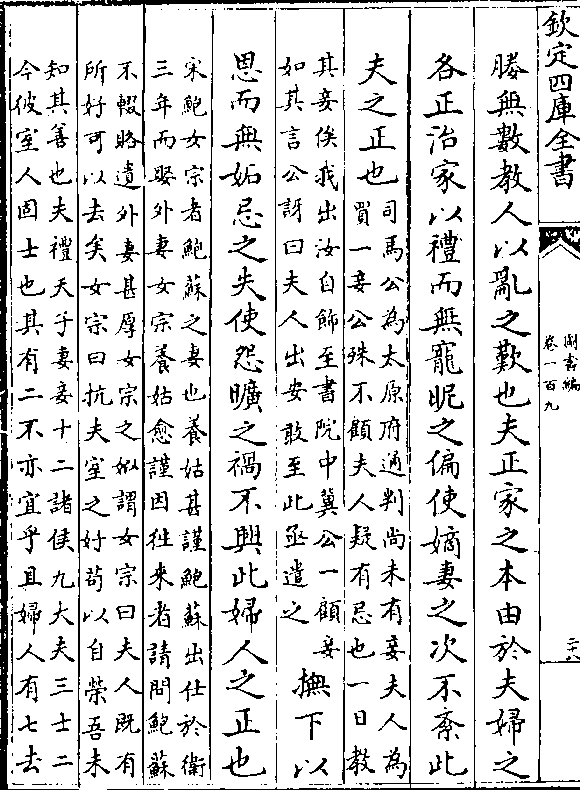 欽定四庫全書
圖書編
卷一百九
二十八
媵無數教人以亂之歎也夫正家之本由於夫婦之
各正治家以禮而無寵昵之偏使嫡妻之次不紊此
夫之正也
司馬公為太原府通判尚未有妾夫人為
買一妾公殊不顧夫人疑有忌也一日教
其妾俟我出汝自飾至書院中冀公一顧妾
如其言公訝曰夫人出安敢至此亟遣之
撫下以
恩而無妬忌之失使怨曠之禍不興此婦人之正也
宋鮑女宗者鮑蘇之妻也養姑甚謹鮑蘇出仕於衛
三年而娶外妻女宗養姑愈謹因往來者請問鮑蘇
不輟賂遺外妻甚厚女宗之姒謂女宗曰夫人既有
所好可以去矣女宗曰抗夫室之好苟以自榮吾未
知其善也夫禮天子妻妾十二諸侯九大夫三士二
今彼室人固士也其有二不亦宜乎且婦人有七去